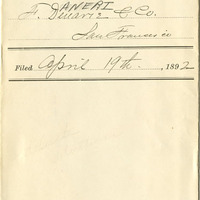 DANERI
F. Dinari & Co.
San Francisco
Filed April 19th, 1892